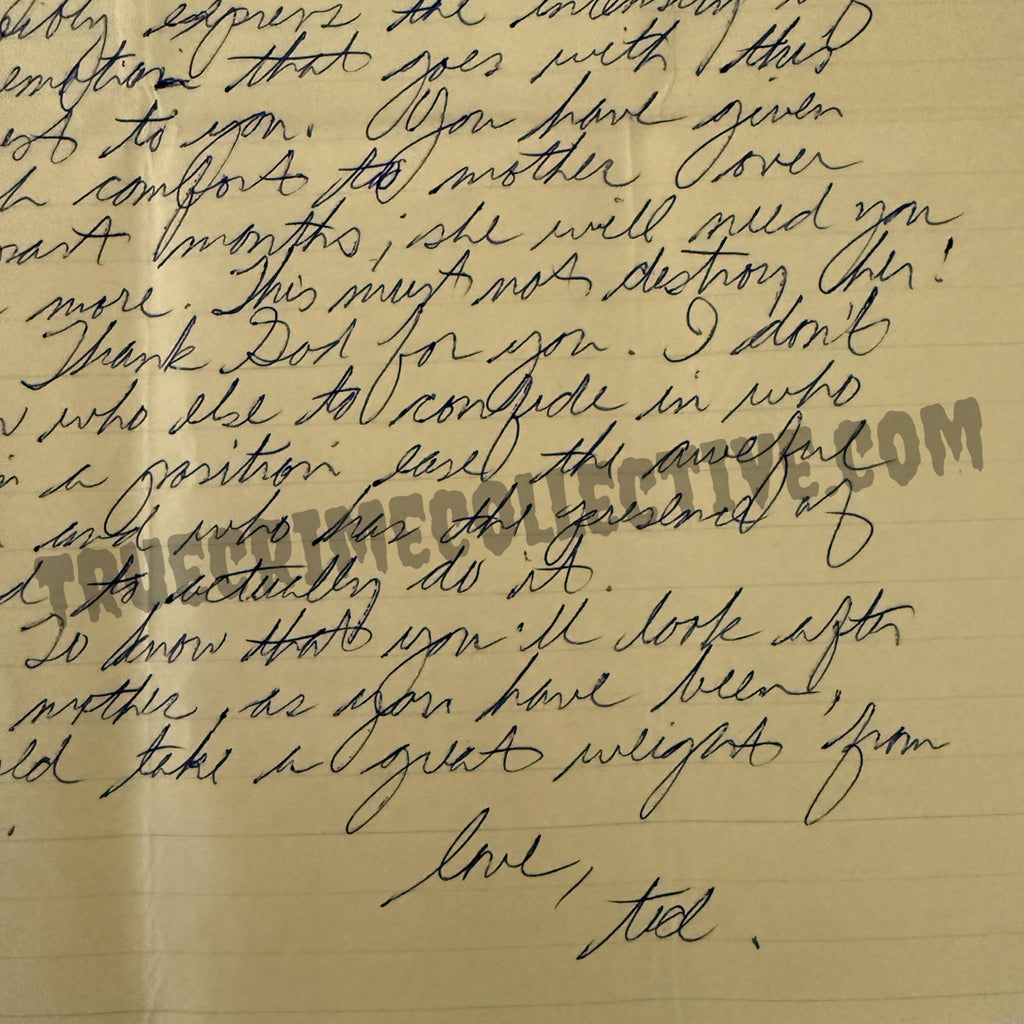 express the intensity of
emotion that goes with this
to you. You have given
comfort to mother over
months; she will need you
more. This must not destroy her!
Thank God for you. I don't
who else to confide in who
a position ease the aweful
and who has the presence of
to actually do it.
To know that you'll look after
mother, as you have been,
take a great weight from
love,
ted.
TRUECRIMECOLLECTIVE.COM